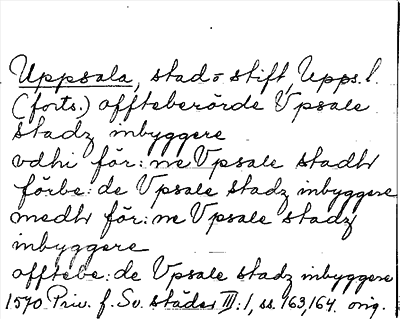 Uppsala, stad o stift, Upps. l.
(forts.) offteberörde Vpsale
stadz inbyggere
vdhi för:ne Vpsale stadh
förbe:de Vpsale stadz inbyggere
medh för:ne Vpsale stadz
inbyggere
offtebe:de Vpsale stadz inbyggere
1570 Priv. f. Sv. städer III:1, ss. 163,164. orig.